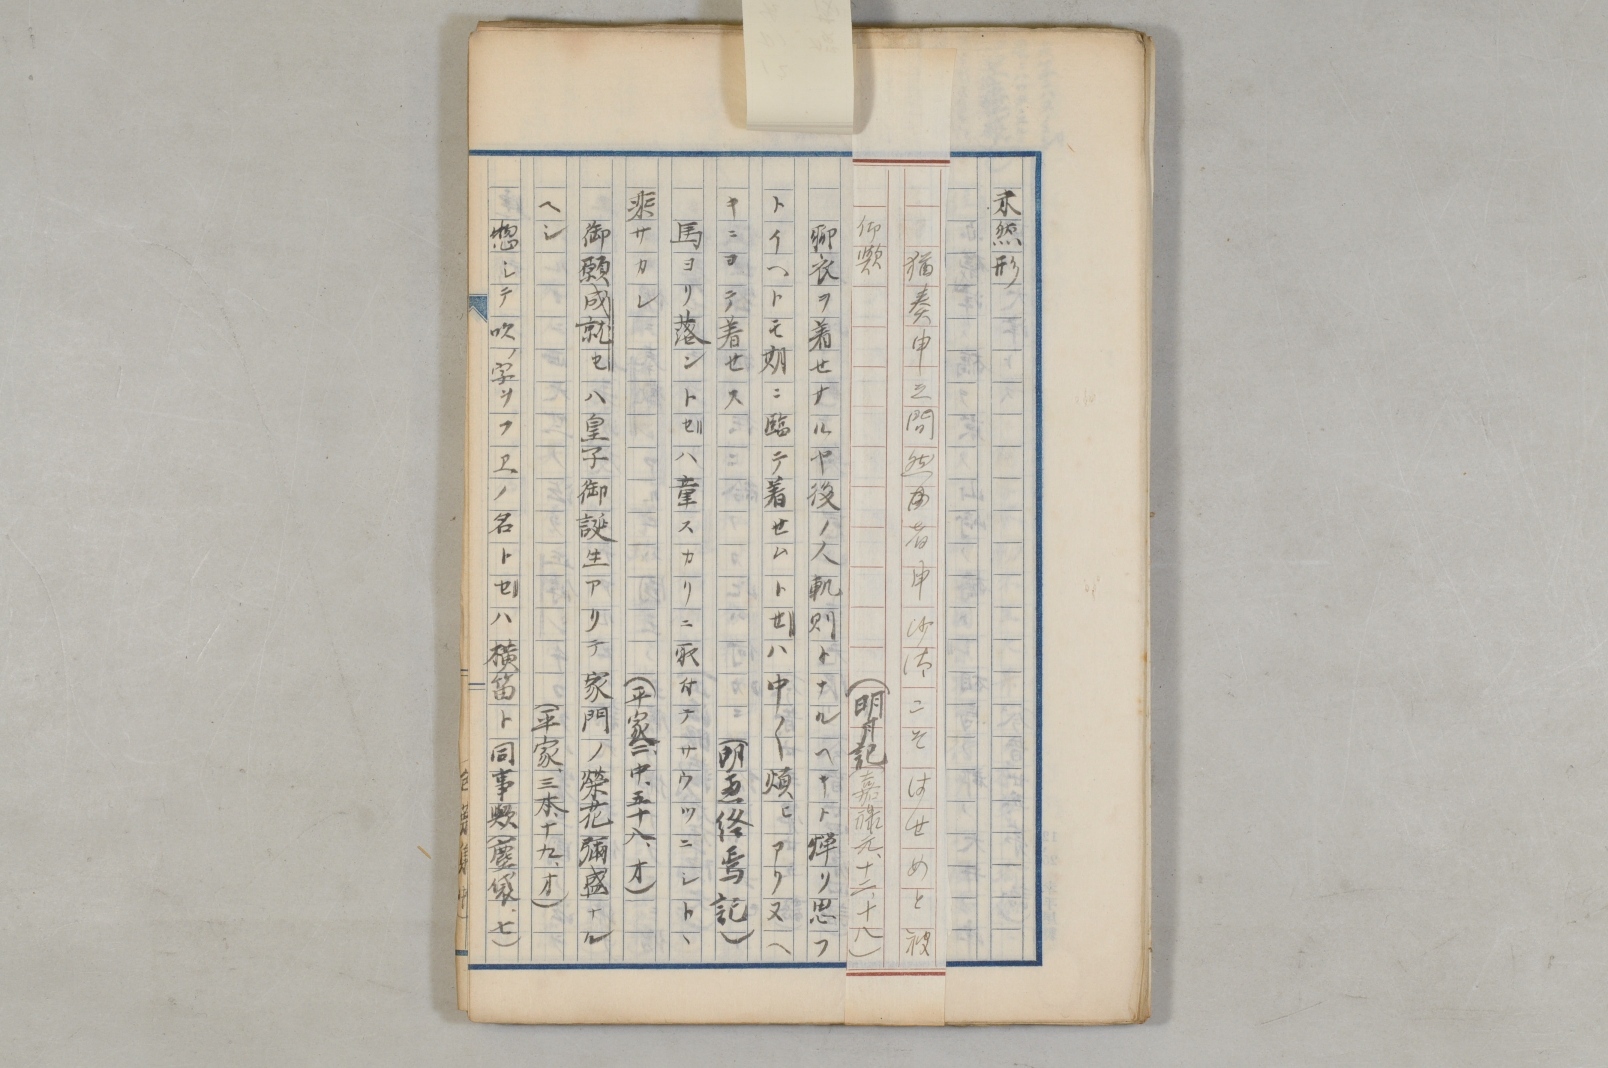 未然形
猶奏申之間然者申沙汰こそはせめと被
仰歟　(明月記　嘉禄元、十二、十八)
御衣ヲ着セナルヤ後ノ人軌則トナルヘキト憚リ思フ
トイヘトモ期ニ臨テ着セムトセハ中〱煩ヒアリヌヘ
キニヨテ着セス　(明恵終焉記)
馬ヨリ落ントセハ童スカリニ取付テサウツニシト、
乗サカレ　(平家二中、五十八、オ)
御願成就セハ皇子御誕生アリテ家門ノ榮花彌盛ナル
ヘシ　(平家、三本、十九、オ)
惣シテ吹ノ字ヲフエノ名トセハ横笛ト同事歟(塵袋、七)